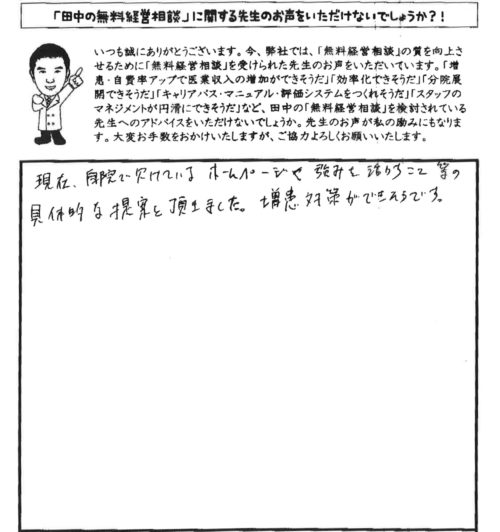 「田中の無料経営相談」に関する先生のお声をいただけないでしょうか?!
いつも誠にありがとうございます。今、弊社では、「無料経営相談」の質を向上さ
せるために「無料経営相談」を受けられた先生のお声をいただいています。「増
患・自費率アップで医業収入の増加ができそうだ」「効率化できそうだ」「分院展
開できそうだ」「キャリアパス・マニュアル・評価システムをつくれそうだ」「スタッフの
マネジメントが円滑にできそうだ」など、田中の「無料経営相談」を検討されている
先生へのアドバイスをいただけないでしょうか。先生のお声が私の励みにもなりま
す。大変お手数をおかけいたしますが、ご協力よろしくお願いいたします。
現在、自院で欠けている ホームページや 強みを活かすこと 等の
具体的な提案を頂きました。増患対策ができそうです。